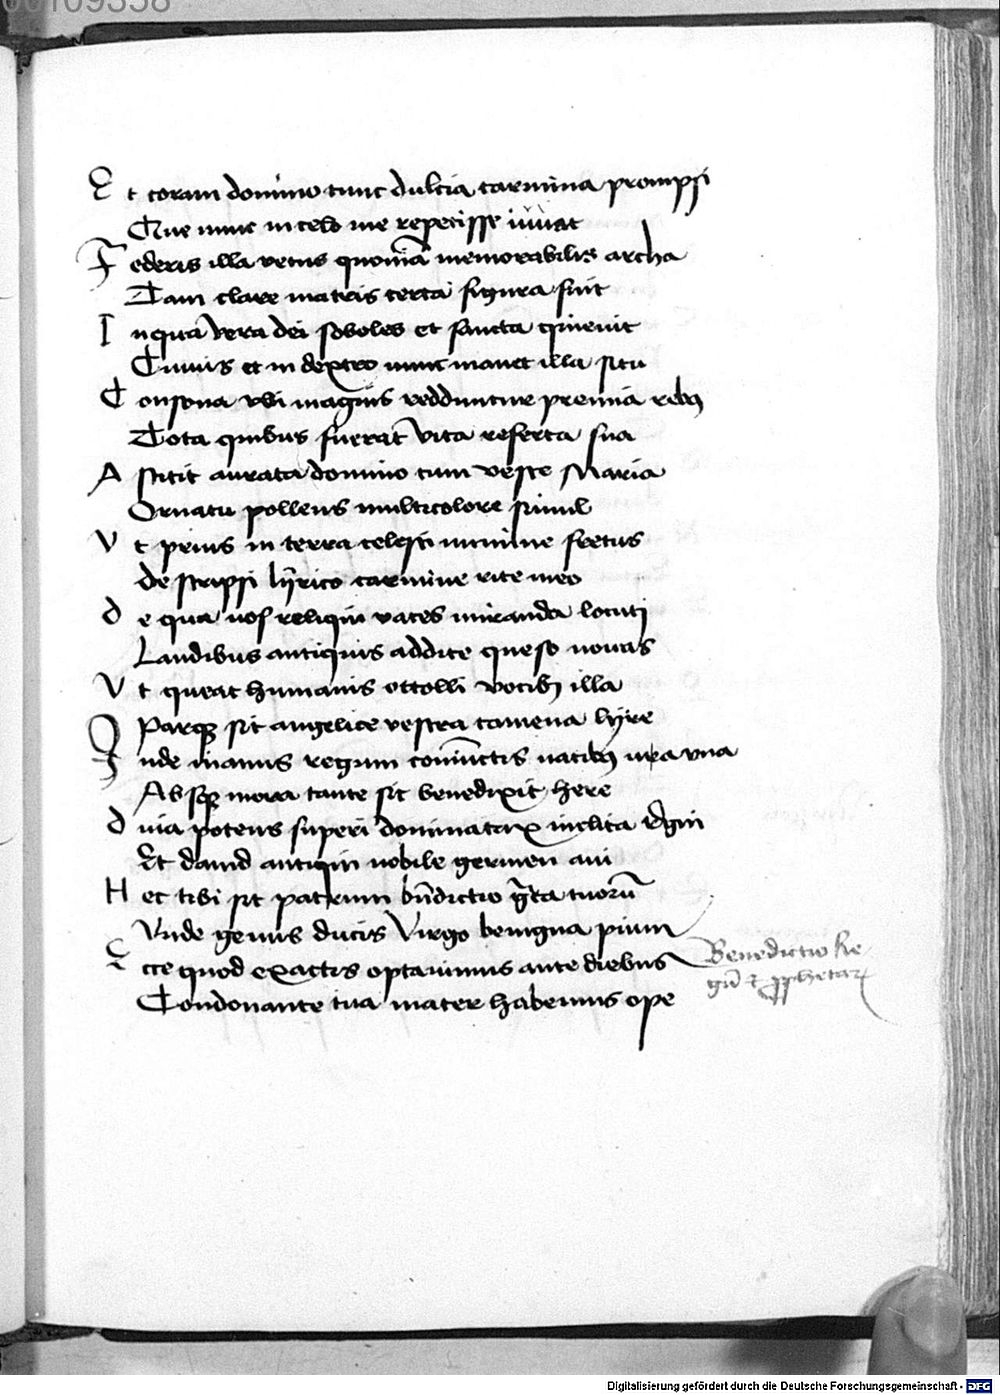 00109358
Et coram domino tunc dulcia carmina prompsi
Que nunc in celo me repetisse iuuat
Federis illa vetus quoniā memorabilis archa
Tam clare matris certa figura fuit
In qua vera dei soboles et sancta quieuit
Cuius et in dextro nunc manet illa situ
Consona vbi magnis redduntur premia rebꝫ
Tota quibus fuerat vita referta sua
Astitit aurata domino cum veste Maria
Ornatu pollens multicolore simul
Vt prius in terra celesti numine fretus
Descripsi lyrico carmine rite meo
de qua nos reliqui vates miranda locuti
Laudibus antiquis addite queso nouas
Vt queat humanis attolli vocibꝫ illa
Parqꝫ sit angelice vestra camena lyre
Inde manus regum coniūctis vatibꝫ vna
Absqꝫ mora tante sic benedixit here
diua potens superi dominatrix inclita regni
Et dauid antiqui nobile germen aui
Hec tibi sit patrum bn̄dictio grata tuorū
Vnde genus ducis Virgo benigna pium
Ecce quod exactis optauimus ante diebus
Condonante tua mater habemus ope
Benedictio Re-
gū et prophetarum
Digitalisierung gefördert durch die Deutsche Forschungsgemeinschaft - DFG